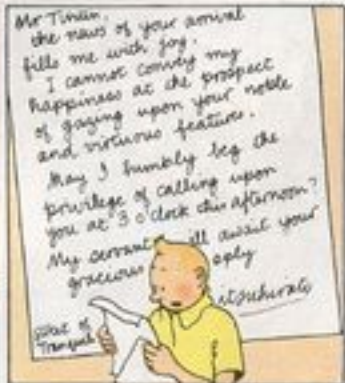 Mr Tintin,
the news of your arrival
fills me with joy.
I cannot convey my
happiness at the prospect
of gazing upon your noble
and virtuous features.
May I humbly beg the
privilege of calling upon
you at 3 o'clock this afternoon?
My servant ill await your
gracious eply
Street of
Tranquil